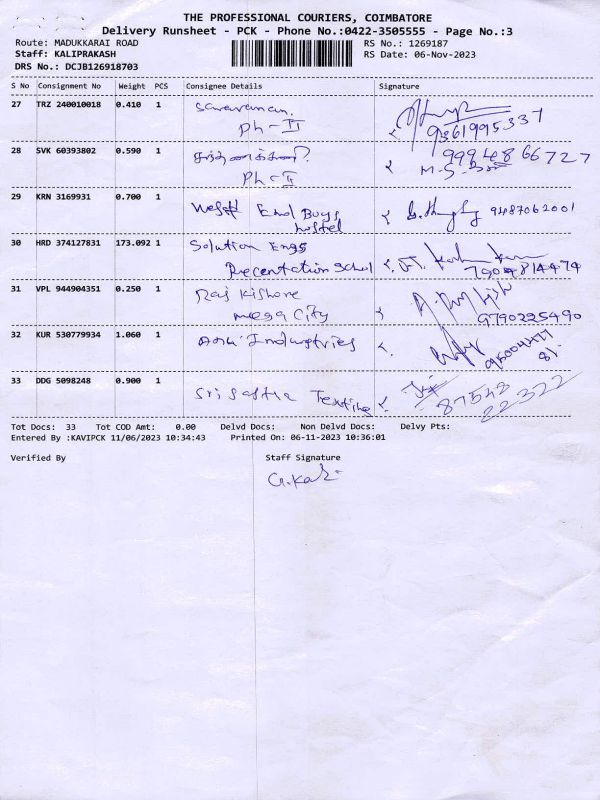 THE PROFESSIONAL COURIERS, COIMBATORE
Delivery Runsheet - PCK - Phone No.:0422-3505555 - Page No.:3
Route: MADUKKARAI ROAD RS No.: 1269187
Staff: KALIPRAKASH RS Date: 06-Nov-2023
DRS No.: DCJB126918703
S No Consignment No Weight PCS Consignee Details Signature
27 TRZ 240010018 0.410 1 Saravanan.
Ph - II 9361995337
28 SVK 60393802 0.590 1 9994866727
Ph - II M.S.
29 KRN 3169931 0.700 1 West End Boys 9487062001
hostel
30 HRD 374127831 173.092 1 Solution Engs
School 7904814474
31 VPL 944904351 0.250 1 Raj Kishore
mega City 9790225490
32 KUR 530779934 1.060 1 Industries
33 DDG 5098248 0.900 1 Sri Textile 87548
22322
Tot Docs: 33 Tot COD Amt: 0.00 Delvd Docs: Non Delvd Docs: Delvy Pts:
Entered By :KAVIPCK 11/06/2023 10:34:43 Printed On: 06-11-2023 10:36:01
Verified By Staff Signature
G.Kali